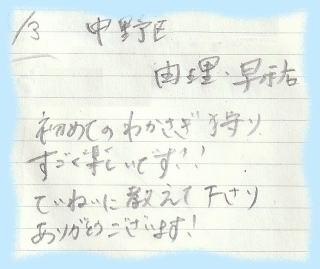 /3 中野区
由理・早祐
初めてのわかさぎ狩り
すごく楽しいです!!
ていねいに教えて下さり
ありがとうございます!